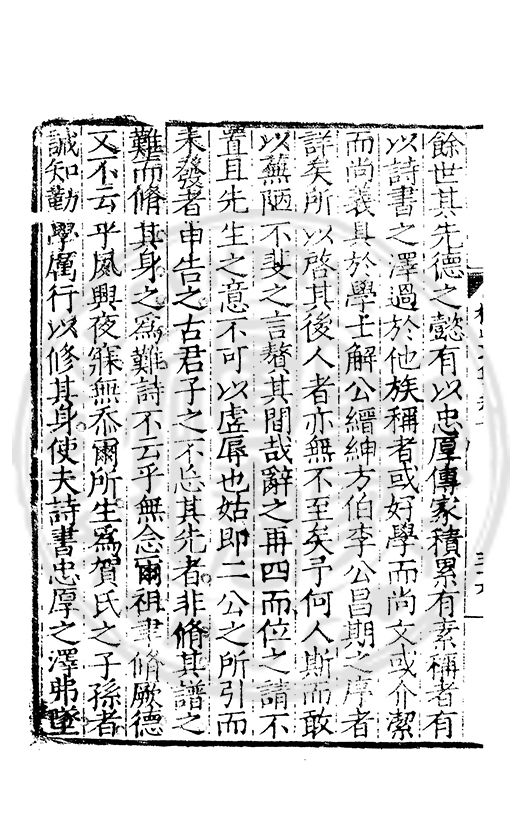 餘世其先德之懿有以忠厚傳家積累有素稱者有
以詩書之澤過於他族稱者或好學而尚文或介潔
而尚義具於學士解公縉紳方伯李公昌期之序者
詳矣所以啓其後人者亦無不至矣予何人斯而敢
以蕪陋不斐之言贅其間哉辭之再四而位之請不
置且先生之意不可以虛辱也姑即二公之所引而
未發者申告之古君子之不忘其先者非脩其譜之
難而脩其身之爲難詩不云乎無念爾祖聿脩厥德
又不云乎夙興夜寐無忝爾所生爲賀氏之子孫者
誠知勸學厲行以修其身使夫詩書忠厚之澤弗墜